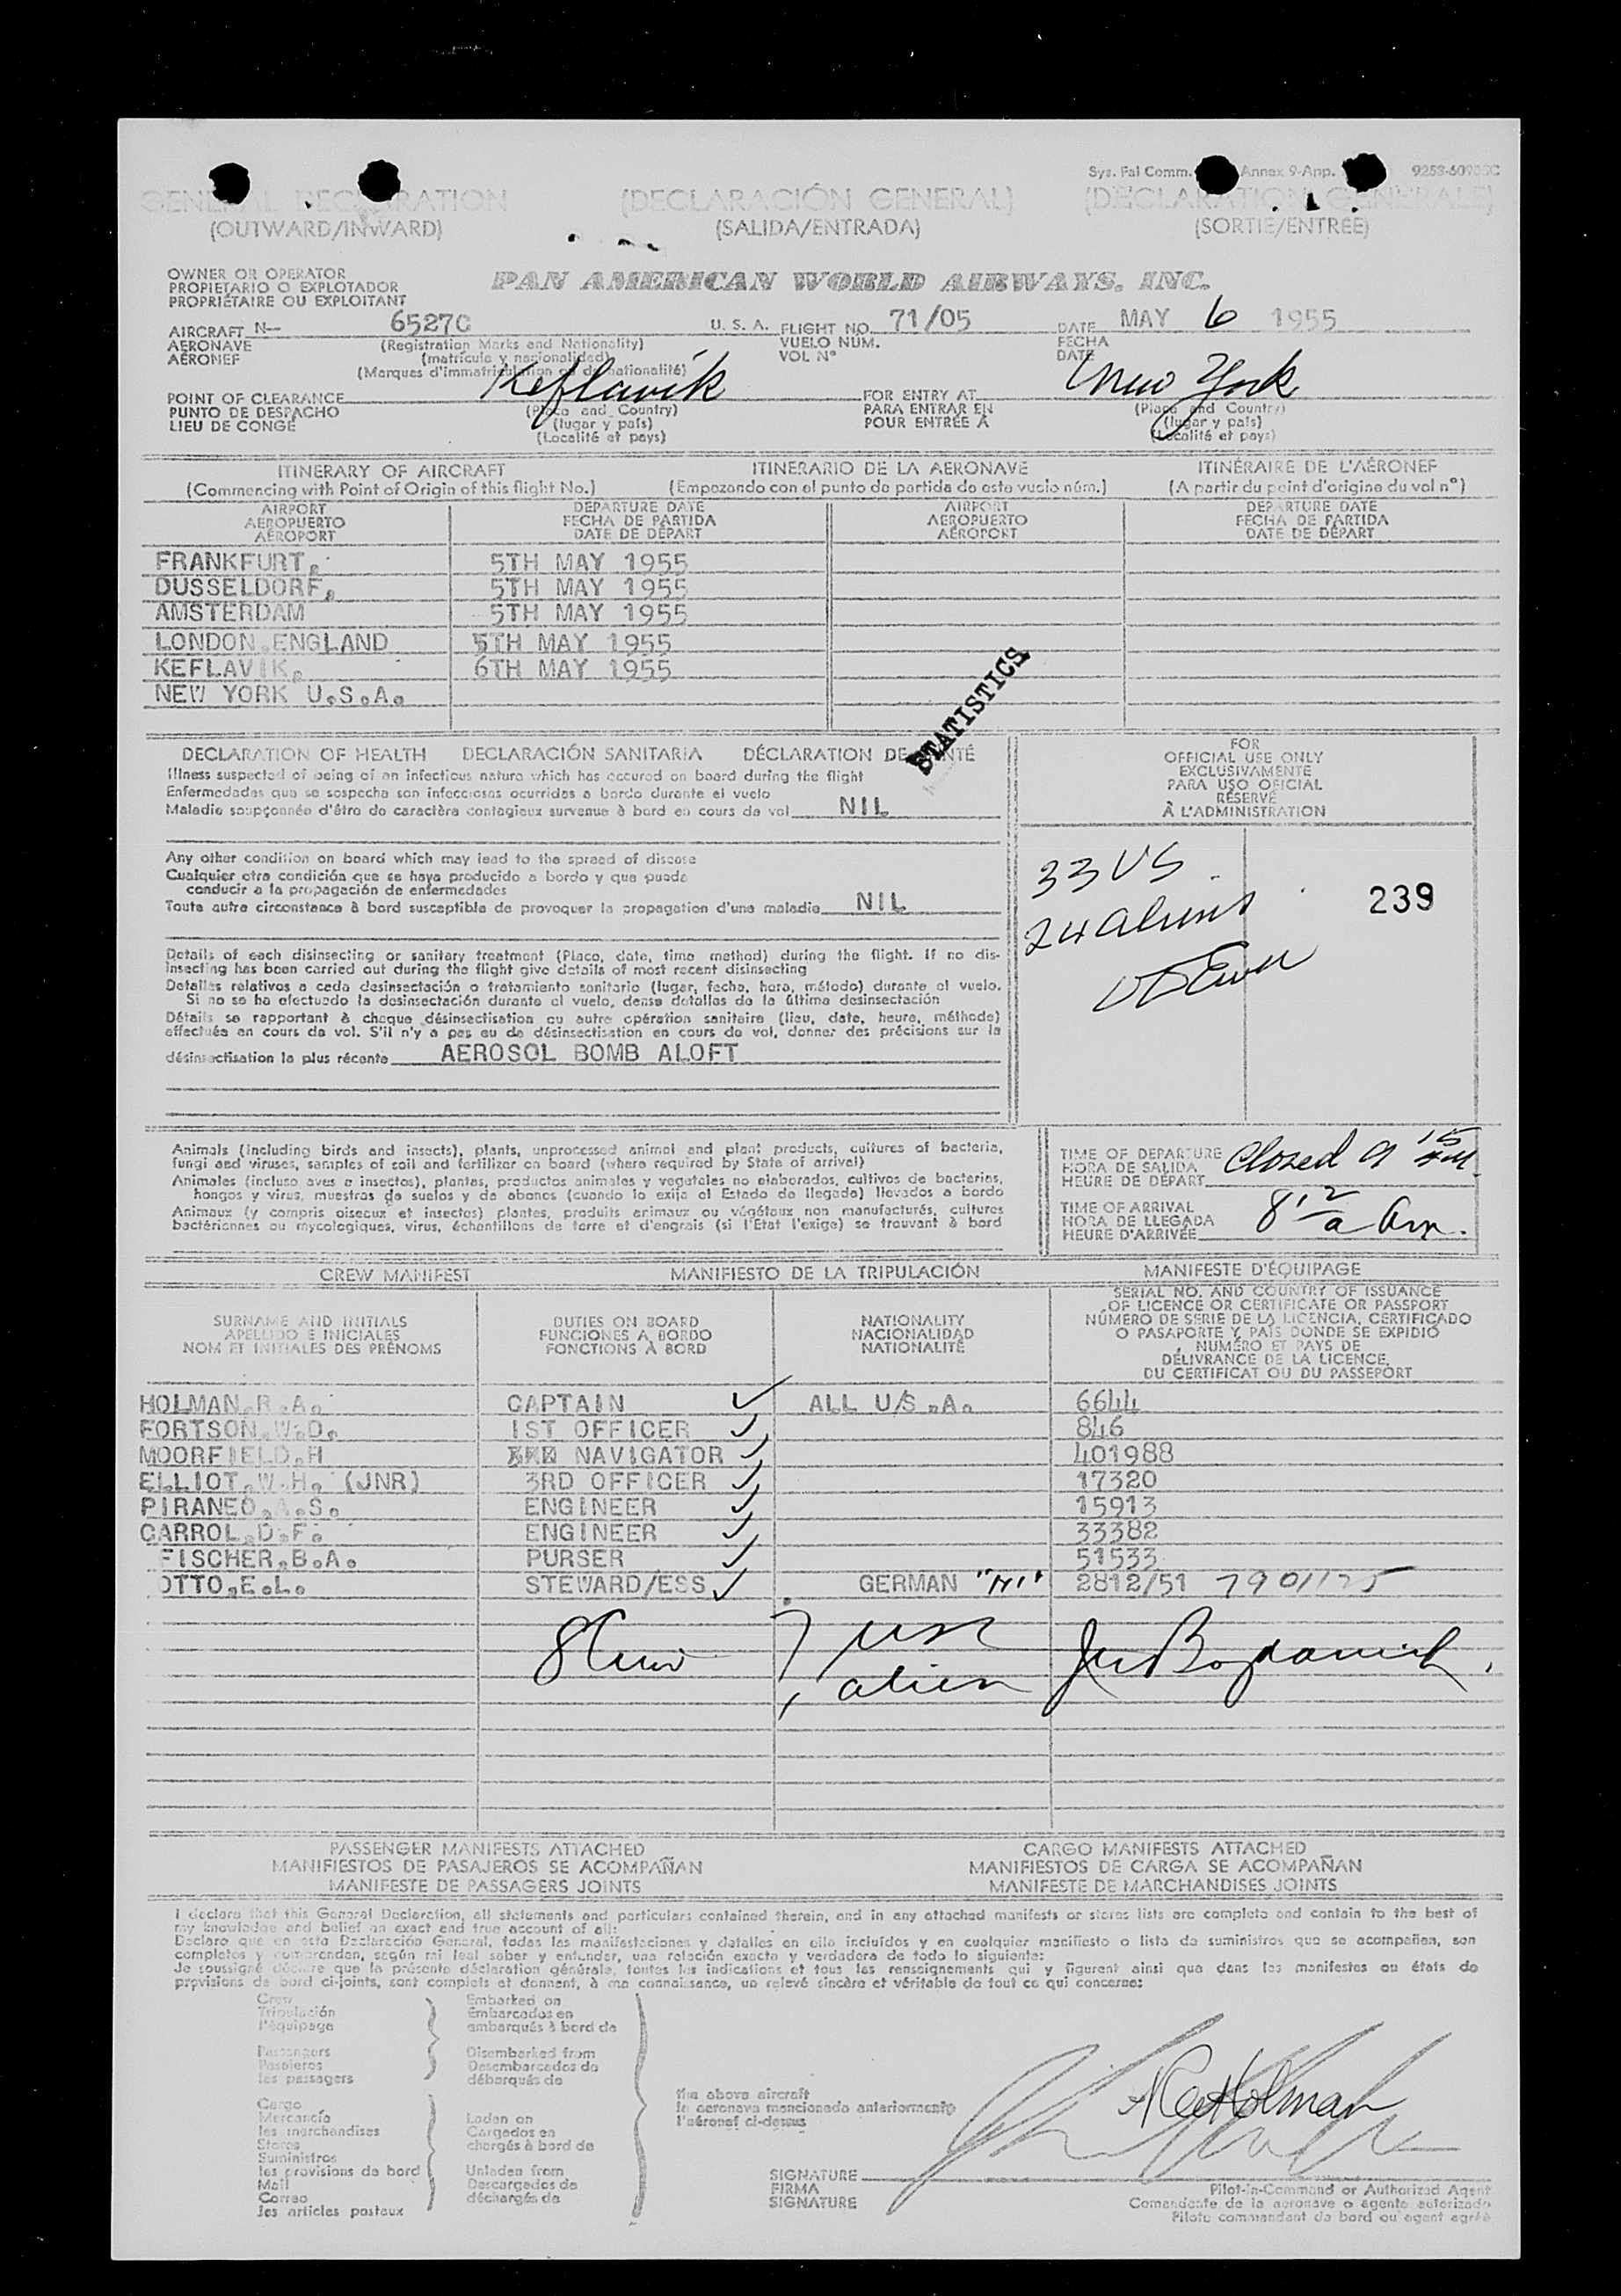 Sys. Fal Comm. Annex 9-App. 9253-60905C
GENERAL DECLARATION (DECLARACIÓN GENERAL) (DECLARATION GENERALE)
(OUTWARD/INWARD) (SALIDA/ENTRADA) (SORTIE/ENTREE)
OWNER OR OPERATOR
PROPIETARIO O EXPLOTADOR
PROPRIÉTAIRE OU EXPLOITANT
PAN AMERICAN WORLD AIRWAYS, INC.
AIRCRAFT N- 6527C U. S. A. FLIGHT NO. 71/05 DATE MAY 6 1955
AERONAVE (Registration Marks and Nationality) VUELO NUM. FECHA
AÉRONEF (matrícula y nacionalidad) VOL N° DATE
(Marques d'immatriculation et de nationalité)
POINT OF CLEARANCE Keflavik FOR ENTRY AT New York
PUNTO DE DESPACHO (Place and Country) PARA ENTRAR EN (Place and Country)
LIEU DE CONGÉ (lugar y país) POUR ENTRÉE À (lugar y país)
(Localité et pays) (Localité et pays)
ITINERARY OF AIRCRAFT ITINERARIO DE LA AERONAVE ITINÉRAIRE DE L'AÉRONEF
(Commencing with Point of Origin of this flight No.) (Empezando con el punto de partida de este vuelo núm.) (A partir du point d'origine du vol n°)
AIRPORT DEPARTURE DATE AIRPORT DEPARTURE DATE
AEROPUERTO FECHA DE PARTIDA AEROPUERTO FECHA DE PARTIDA
AÉROPORT DATE DE DÉPART AÉROPORT DATE DE DÉPART
FRANKFURT, 5TH MAY 1955
DUSSELDORF, 5TH MAY 1955
AMSTERDAM 5TH MAY 1955
LONDON.ENGLAND 5TH MAY 1955
KEFLAVIK, 6TH MAY 1955
NEW YORK U.S.A.
STATISTICS
DECLARATION OF HEALTH DECLARACIÓN SANITARIA DÉCLARATION DE SANTÉ
Illness suspected of being of an infectious nature which has occured on board during the flight
Enfermedades que se sospecha son infecciosas ocurridas a bordo durante el vuelo
Maladie soupçonnée d'être de caractère contagieux survenue à bord en cours de vol NIL
Any other condition on board which may lead to the spread of disease
Cualquier otra condición que se haya producido a bordo y que puede
conducir a la propagación de enfermedades
Toute autre circonstance à bord susceptible de provoquer la propagation d'une maladie NIL
Details of each disinsecting or sanitary treatment (Place, date, time method) during the flight. If no dis-
insecting has been carried out during the flight give details of most recent disinsecting
Detalles relativos a cada desinsectación o tratamiento sanitario (lugar, fecha, hora, método) durante el vuelo.
Si no se ha efectuado la desinsectación durante el vuelo, dense detalles de la última desinsectación
Détails se rapportant à chaque désinsectisation ou autre opération sanitaire (lieu, date, heure, méthode)
effectués en cours de vol. S'il n'y a pas eu de désinsectisation en cours de vol, donner des précisions sur la
désinsectisation la plus récente AEROSOL BOMB ALOFT
FOR
OFFICIAL USE ONLY
EXCLUSIVAMENTE
PARA USO OFICIAL
RÉSERVÉ
À L'ADMINISTRATION
33 US
24 aliens
239
Animals (including birds and insects), plants, unprocessed animal and plant products, cultures of bacteria,
fungi and viruses, samples of soil and fertilizer on board (where required by State of arrival)
Animales (incluso aves e insectos), plantas, productos animales y vegetales no elaborados, cultivos de bacterias,
hongos y virus, muestras de suelos y de abonos (cuando lo exija el Estado de llegada) llevados a bordo
Animaux (y compris oiseaux et insectes) plantes, produits animaux ou végétaux non manufacturés, cultures
bactériennes ou mycologiques, virus, échantillons de terre et d'engrais (si l'Etat l'exige) se trouvant à bord
TIME OF DEPARTURE Closed 9 15 AM.
HORA DE SALIDA
HEURE DE DÉPART
TIME OF ARRIVAL
HORA DE LLEGADA 8 12
HEURE D'ARRIVÉE
CREW MANIFEST MANIFIESTO DE LA TRIPULACIÓN MANIFESTE D'ÉQUIPAGE
SURNAME AND INITIALS
APELLIDO E INICIALES
NOM ET INITIALES DES PRÉNOMS
DUTIES ON BOARD
FUNCIONES A BORDO
FONCTIONS À BORD
NATIONALITY
NACIONALIDAD
NATIONALITÉ
SERIAL NO. AND COUNTRY OF ISSUANCE
OF LICENCE OR CERTIFICATE OR PASSPORT
NÚMERO DE SERIE DE LA LICENCIA, CERTIFICADO
O PASAPORTE Y PAÍS DONDE SE EXPIDIÓ
NUMÉRO ET PAYS DE
DÉLIVRANCE DE LA LICENCE,
DU CERTIFICAT OU DU PASSEPORT
HOLMAN.R.A. CAPTAIN ✓ ALL U/S.A. 6644
FORTSON.W.D. 1ST OFFICER ✓ 846
MOORFIELD.H NAVIGATOR ✓ 401988
ELLIOT.W.H. (JNR) 3RD OFFICER ✓ 17320
PIRANEO.A.S. ENGINEER ✓ 15913
CARROL.D.F. ENGINEER ✓ 33382
FISCHER.B.A. PURSER ✓ 51533
OTTO.E.L. STEWARD/ESS ✓ GERMAN 2812/51 7901125
8 Crew 7 USA
1 alien
PASSENGER MANIFESTS ATTACHED CARGO MANIFESTS ATTACHED
MANIFIESTOS DE PASAJEROS SE ACOMPAÑAN MANIFIESTOS DE CARGA SE ACOMPAÑAN
MANIFESTE DE PASSAGERS JOINTS MANIFESTE DE MARCHANDISES JOINTS
I declare that this General Declaration, all statements and particulars contained therein, and in any attached manifests or stores lists are complete and contain to the best of
my knowledge and belief an exact and true account of all:
Declaro que en esta Declaración General, todas las manifestaciones y detalles en ella incluídos y en cualquier macifiesto o lista de suministros que se acompañen, son
completos y comprenden, según mi leal saber y entender, una relación exacta y verdadera de todo lo siguiente:
Je soussigné déclare que la présente déclaration générale, toutes les indications et tous les renseignements qui y figurent ainsi que dans les manifestes ou états de
provisions de bord ci-joints, sont complets et donnent, à ma connaissance, un relevé sincère et véritable de tout ce qui concerne:
Crew
Tripulación
l'équipage
Passengers
Pasajeros
les passagers
Cargo
Mercancía
les marchandises
Stores
Suministros
les provisions de bord
Mail
Correo
les articles postaux
Embarked on
Embarcados en
embarqués à bord de
Disembarked from
Desembarcados de
débarqués de
Laden on
Cargados en
chargés à bord de
Unladen from
Descargados de
déchargés de
the above aircraft
la aeronave mencionada anteriormente
l'aéronef ci-dessus
Holman
SIGNATURE
FIRMA
SIGNATURE
Pilot-in-Command or Authorized Agent
Comandante de la aeronave o agente autorizado
Pilote commandant de bord ou agent agréé